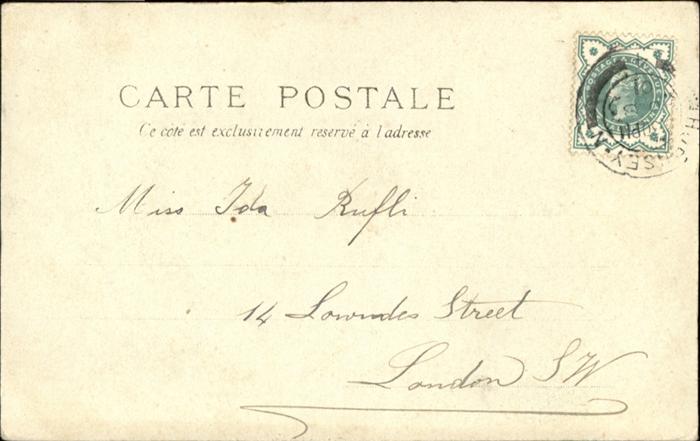 CARTE POSTALE
Ce côté est exclusivement réservé à l'adresse
POSTAGE & REVENUE
Miss Ida Rufli
14 Lowndes Street
London SW